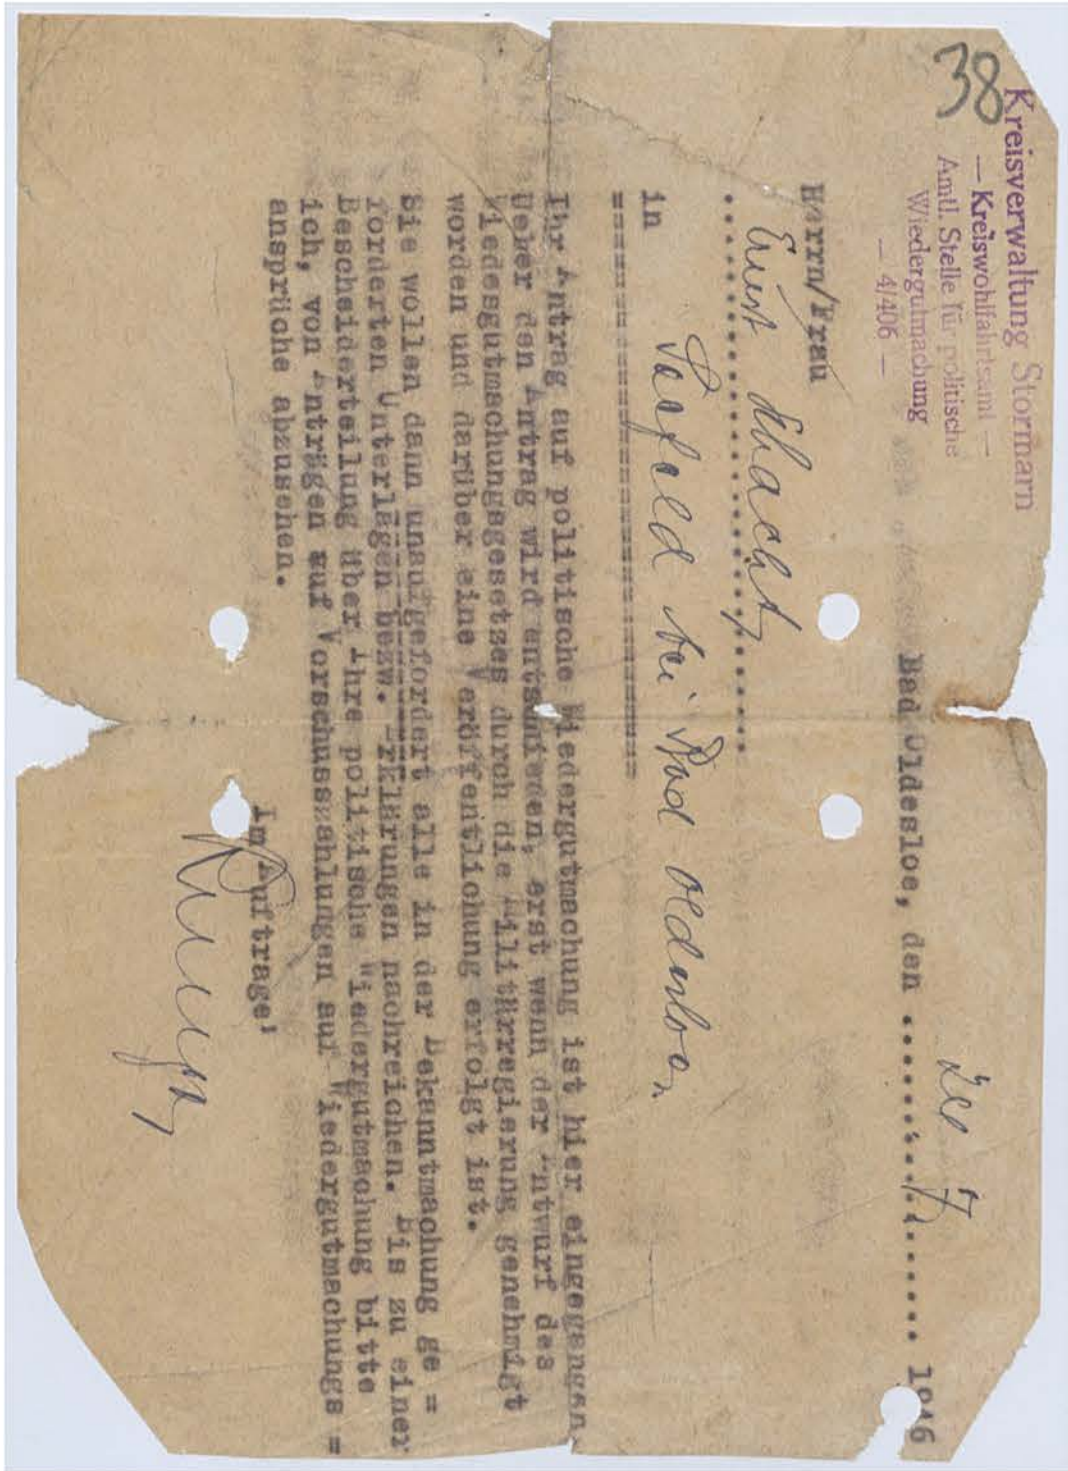 38
Kreisverwaltung Stormarn
— Kreiswohlfahrtsamt —
Amtl. Stelle für politische
Wiedergutmachung
— 4/406 —
Bad Oldesloe, den .................. 1946
Herrn/Frau
Ernst Schacht
in
bei Bad Oldesloe,
Ihr Antrag auf politische Wiedergutmachung ist hier eingegangen.
Ueber den Antrag wird entschieden, erst wenn der Entwurf des
Wiedesgutmachungsgesetzes durch die Militärregierung genehmigt
worden und darüber eine Veröffentlichung erfolgt ist.
Sie wollen dann unaufgefordert alle in der Bekanntmachung ge =
forderten Unterlagen bezw. Erklärungen nachreichen. Bis zu einer
Bescheiderteilung über Ihre politische Wiedergutmachung bitte
ich, von Anträgen auf Vorschusszahlungen auf Wiedergutmachungs =
ansprüche abzusehen.
Im Auftrage!